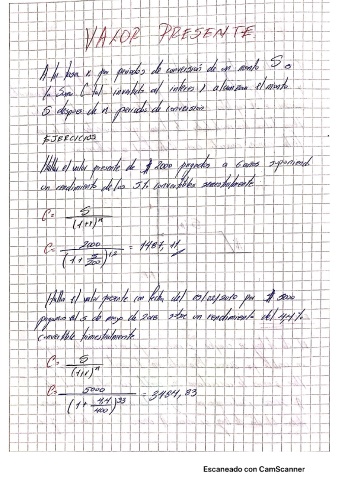 VALOR PRESENTE.
A la tasa x por periodos de conversión de un monto S o
la Suma C tal invertida al interés alcanzan el monto
S despues de n periodos de conversion
EJERCICIOS
Halla el valor presente de $ 2000 pagados a 6 años
un rendimiento de los 5% convertibles semestralmente
C= S
(1+r)ⁿ
C= 2000 = 1487,11
(1+ 5/200)¹²
Halla el valor presente con fecha del por $ 5000
de mayo de 2018 un rendimiento del 4,4%
convertible trimestralmente
C= S
(1+r)ⁿ
C= 5000 = 3484,83
(1+ 4,4/400)³³
Escaneado con CamScanner